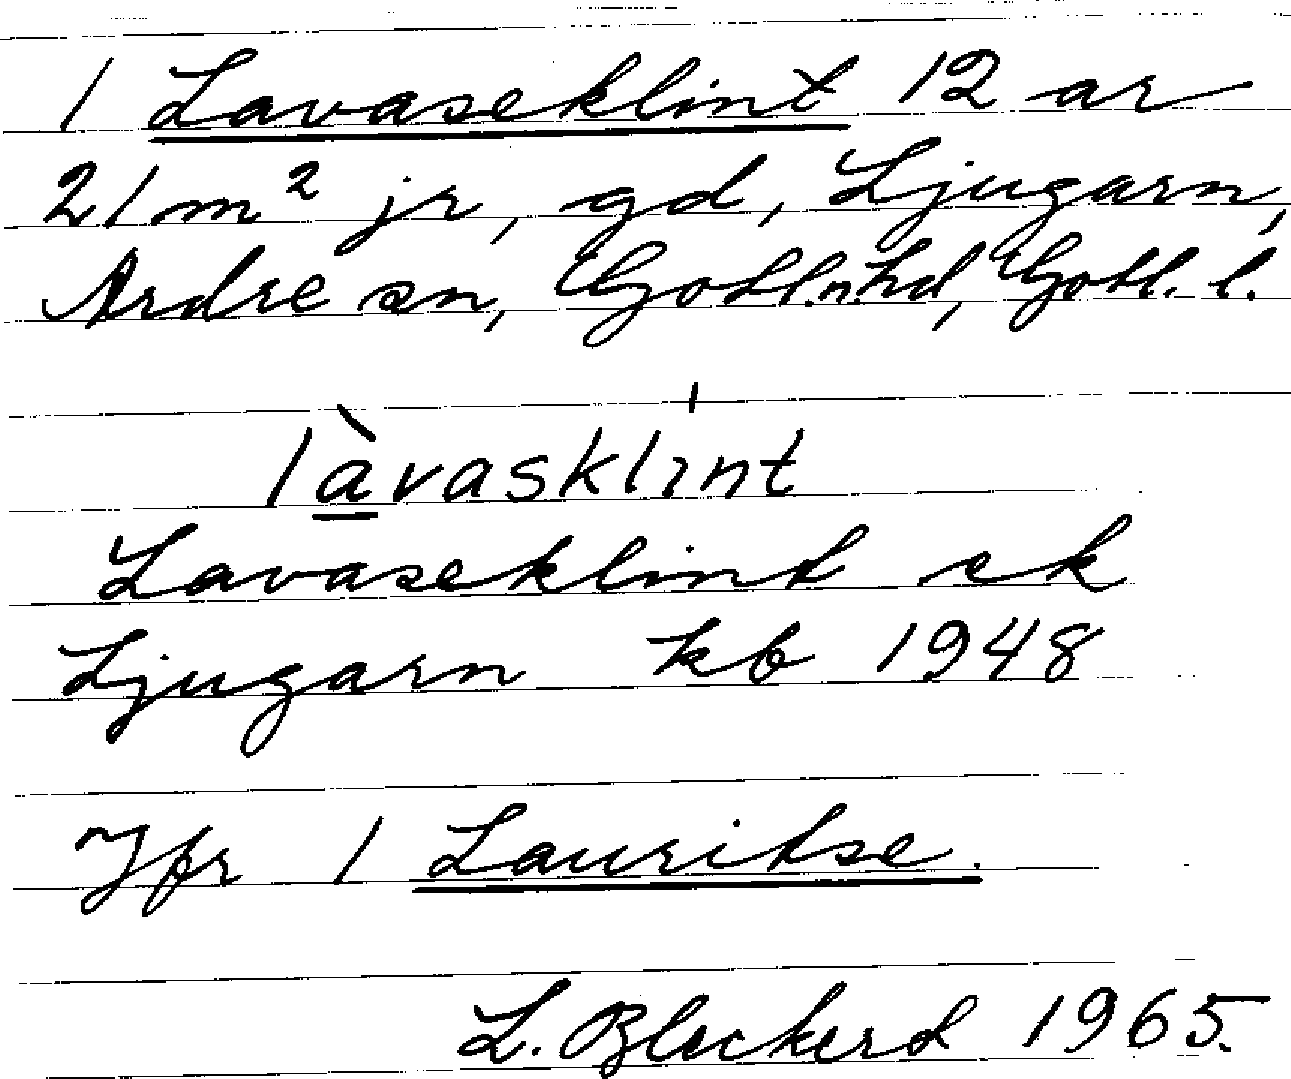 1 Lavaseklint 12 ar
21 m² jr, gd, Ljugarn,
Ardre sn, Gotl.n.hd, Gotl. l.
làvasklint
Lavaseklint ek
Ljugarn kb 1948
Jfr 1 Lauritse.
L. Bleckert 1965.